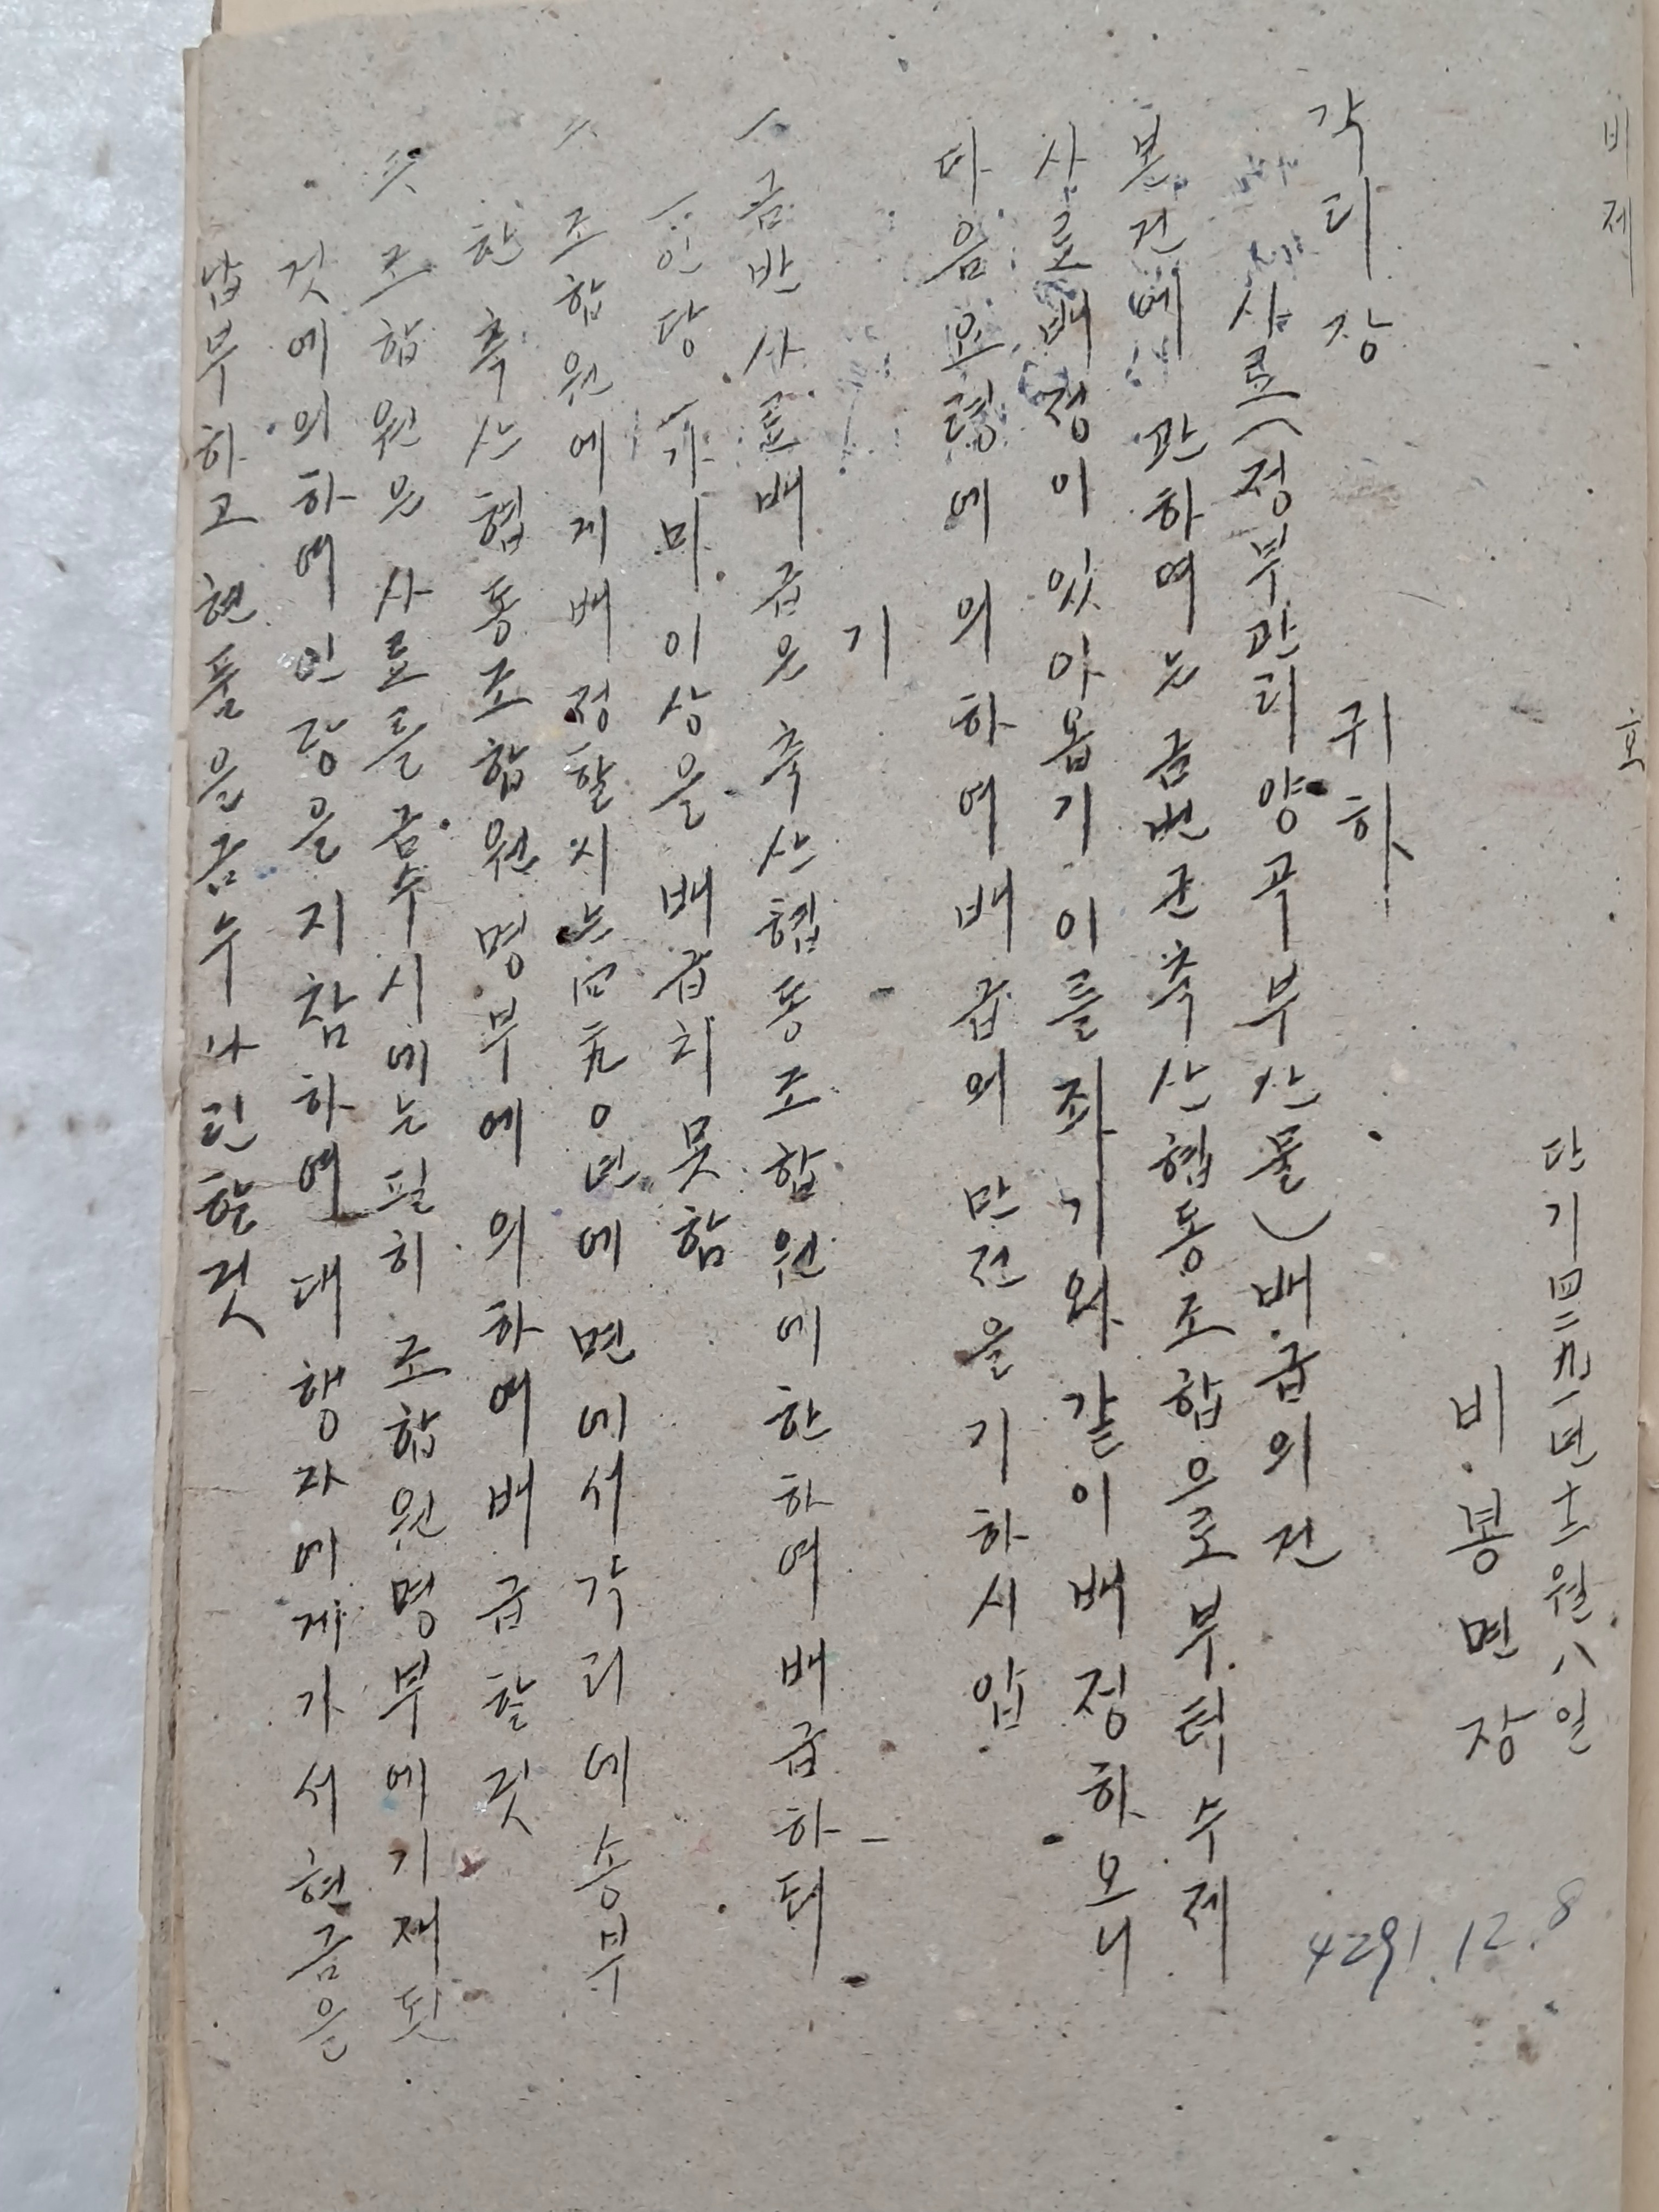 비제 호
단기四二九一년十二월八일
비봉면장
4291.12.8
각리장 귀하
사료(정부관리양곡부산물)배급의건
본건에 관하여는 금번군축산협동조합으로부터수제
사로배정이있아옵기이를좌기와같이배정하오니
다음요령에의하여배급의 만전을기하시압
기
一 금반사료배급은 축산협동조합원에한하여 배급하되
一인당 一가미이상을 배급치못함
二 조합원에게배정할시는四二九0년에면에서각리에송부
한축산협동조합원명부에의하여배급할것
三 조합원은사료를금수시에는필히조합원명부에기재된
것에의하여인장을지참하여대행자에게가서현금을
납부하고현품을금수날인할것